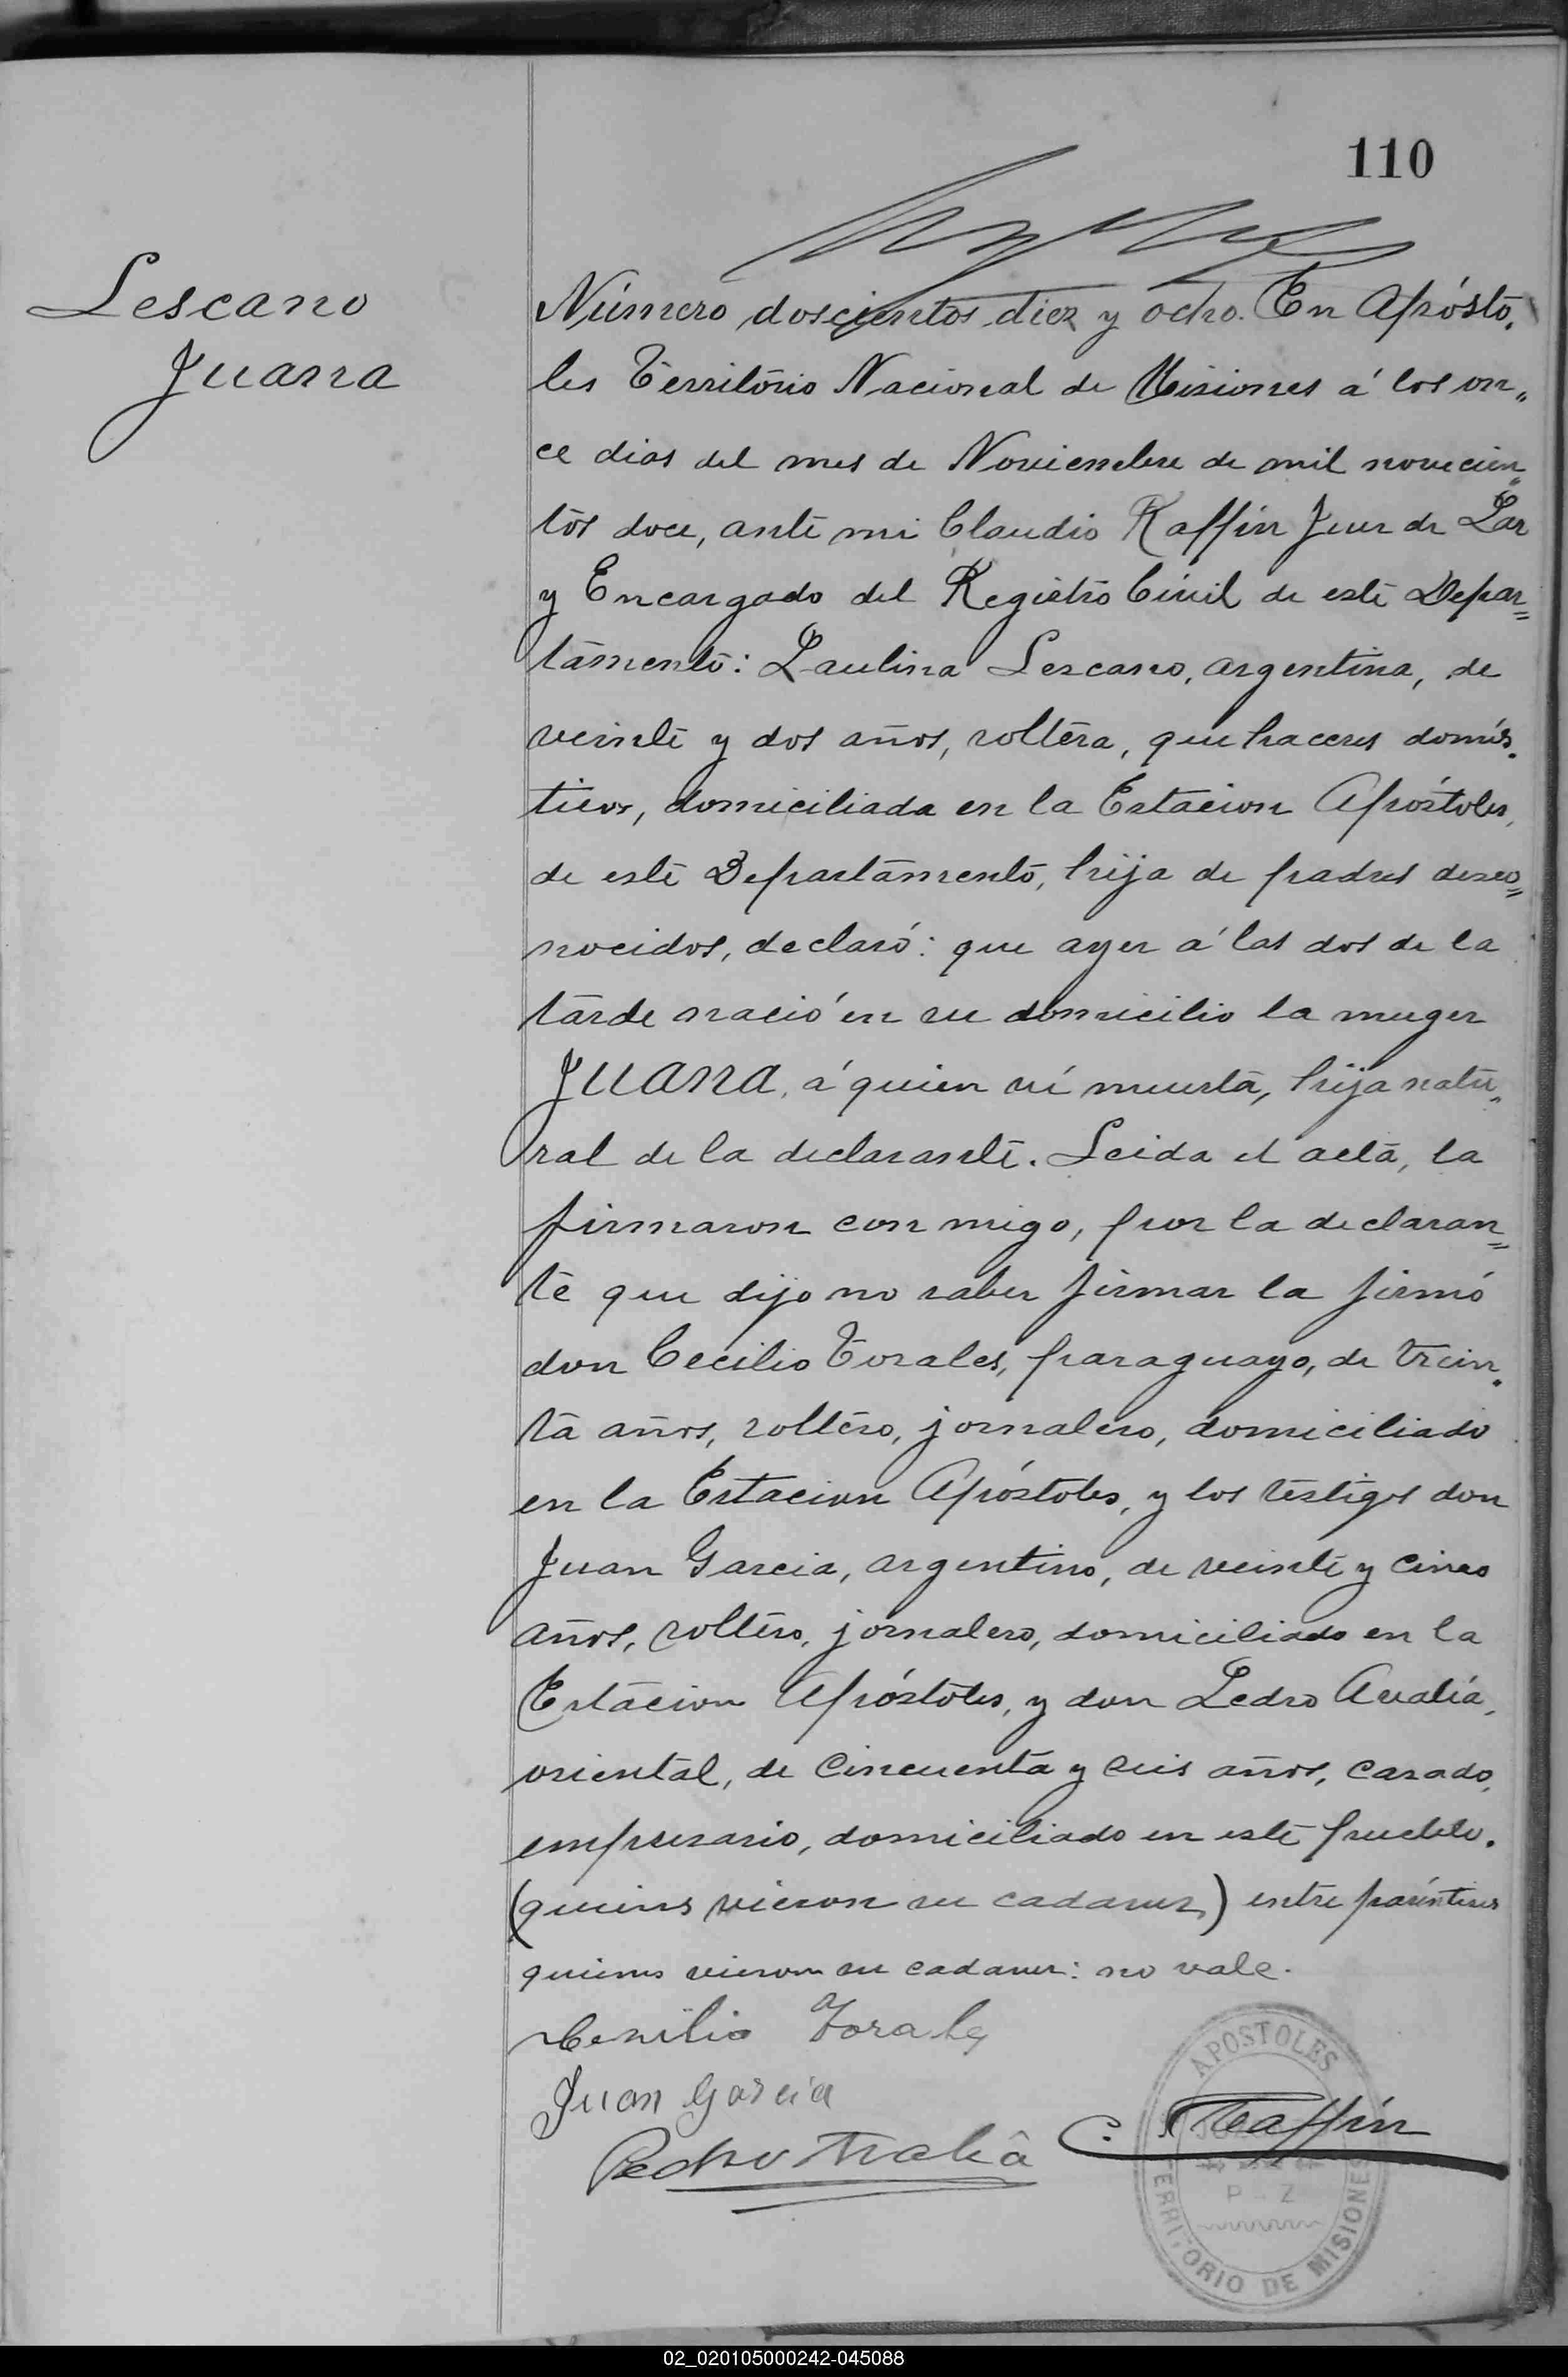 110
Lescano
Juana
Número doscientos diez y ocho. En Apósto,
les Territorio Nacional de Misiones á los on„
ce dias del mes de Noviembre de mil novecien„
tos doce, ante mi Claudio Raffin Juez de Paz
y Encargado del Registro Civil de este Depar=
tamento: Paulina Lezcano, argentina, de
veinte y dos años, soltera, quehaceres domés.
ticos, domiciliada en la Estacion Apóstoles,
de este Departamento, hija de padres desco=
nocidos, declaró: que ayer á las dos de la
tarde nació en su domicilio la muger
JUANA, á quien ví muerta, hija natu„
ral de la declarante. Leida el acta, la
firmaron con migo, por la declaran=
te que dijo no saber firmar la firmó
don Cecilio Torales, paraguayo, de trein.
ta años, soltero, jornalero, domiciliado
en la Estacion Apóstoles, y los testigos don
Juan Garcia, argentino, de veinte y cinco
años, soltero, jornalero, domiciliado en la
Estacion Apóstoles, y don Pedro Avalía,
oriental, de cincuenta y seis años, casado,
empresario, domiciliado en este pueblo.
(quienes vieron su cadaver) entre paréntises
quienes vieron su cadaver: no vale.
Torales
Juan Garcia
Pedro
C. Raffin
APOSTOLES
P - Z
TERRITORIO DE MISIONES
02_020105000242-045088